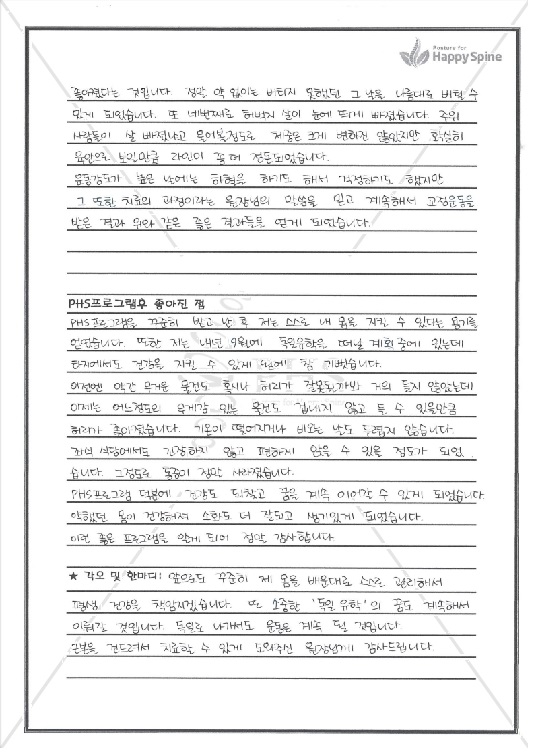 Posture for
HappySpine
좋아졌다는 것입니다. 정말 약 없이는 버티지 못했던 그 날을 나름대로 버틸 수
있게 되었습니다. 또 네번째로 허벅지 살이 눈에 띄게 빠졌습니다. 주위
사람들이 살 빠졌냐고 물어볼정도로 체중은 크게 변하진 않았지만 확실히
육안으로 보일만큼 라인이 꽤 정돈되었습니다.
운동강도가 높은 날에는 하혈을 하기도 해서 걱정하기도 했지만
그 또한 치료의 과정이라는 원장님의 말씀을 믿고 계속해서 교정운동을
받은 결과 위와 같은 좋은 결과들을 얻게 되었습니다.
PHS프로그램후 좋아진 점
PHS프로그램을 꾸준히 받고 난 후 저는 스스로 내 몸을 지킬 수 있다는 용기를
얻었습니다. 또한 저는 내년 9월에 독일유학을 떠날 계획중에 있는데
현지에서도 건강을 지킬 수 있게 참 기뻤습니다.
이전엔 약간 무거운 물건도 혹시나 허리가 잘못될까봐 거의 들지 않았는데
이제는 어느정도의 무게감 있는 물건도 겁내지 않고 들 수 있을만큼
허리가 좋아졌습니다. 기온이 떨어지거나 비오는 날도 두렵지 않습니다.
좌식 식당에서도 긴장하지 않고 편하게 앉을 수 있을 정도가 되었
습니다. 그정도로 통증이 정말 사라졌습니다.
PHS프로그램 덕분에 건강도 되찾고 꿈을 계속 이어갈 수 있게 되었습니다
약했던 몸이 건강해져 소화도 더 잘되고 생기있게 되었습니다.
이런 좋은 프로그램을 알게 되어 정말 감사합니다
★ 각오 및 한마디: 앞으로도 꾸준히 제 몸을 배운대로 스스로 관리해서
평생 건강을 책임지겠습니다. 또 소중한 '독일 유학'의 꿈도 계속해서
이뤄갈 것입니다. 독일로 나가서도 운동은 계속 될 것입니다.
근본을 건드려서 치료할 수 있게 도와주신 원장님께 감사드립니다.